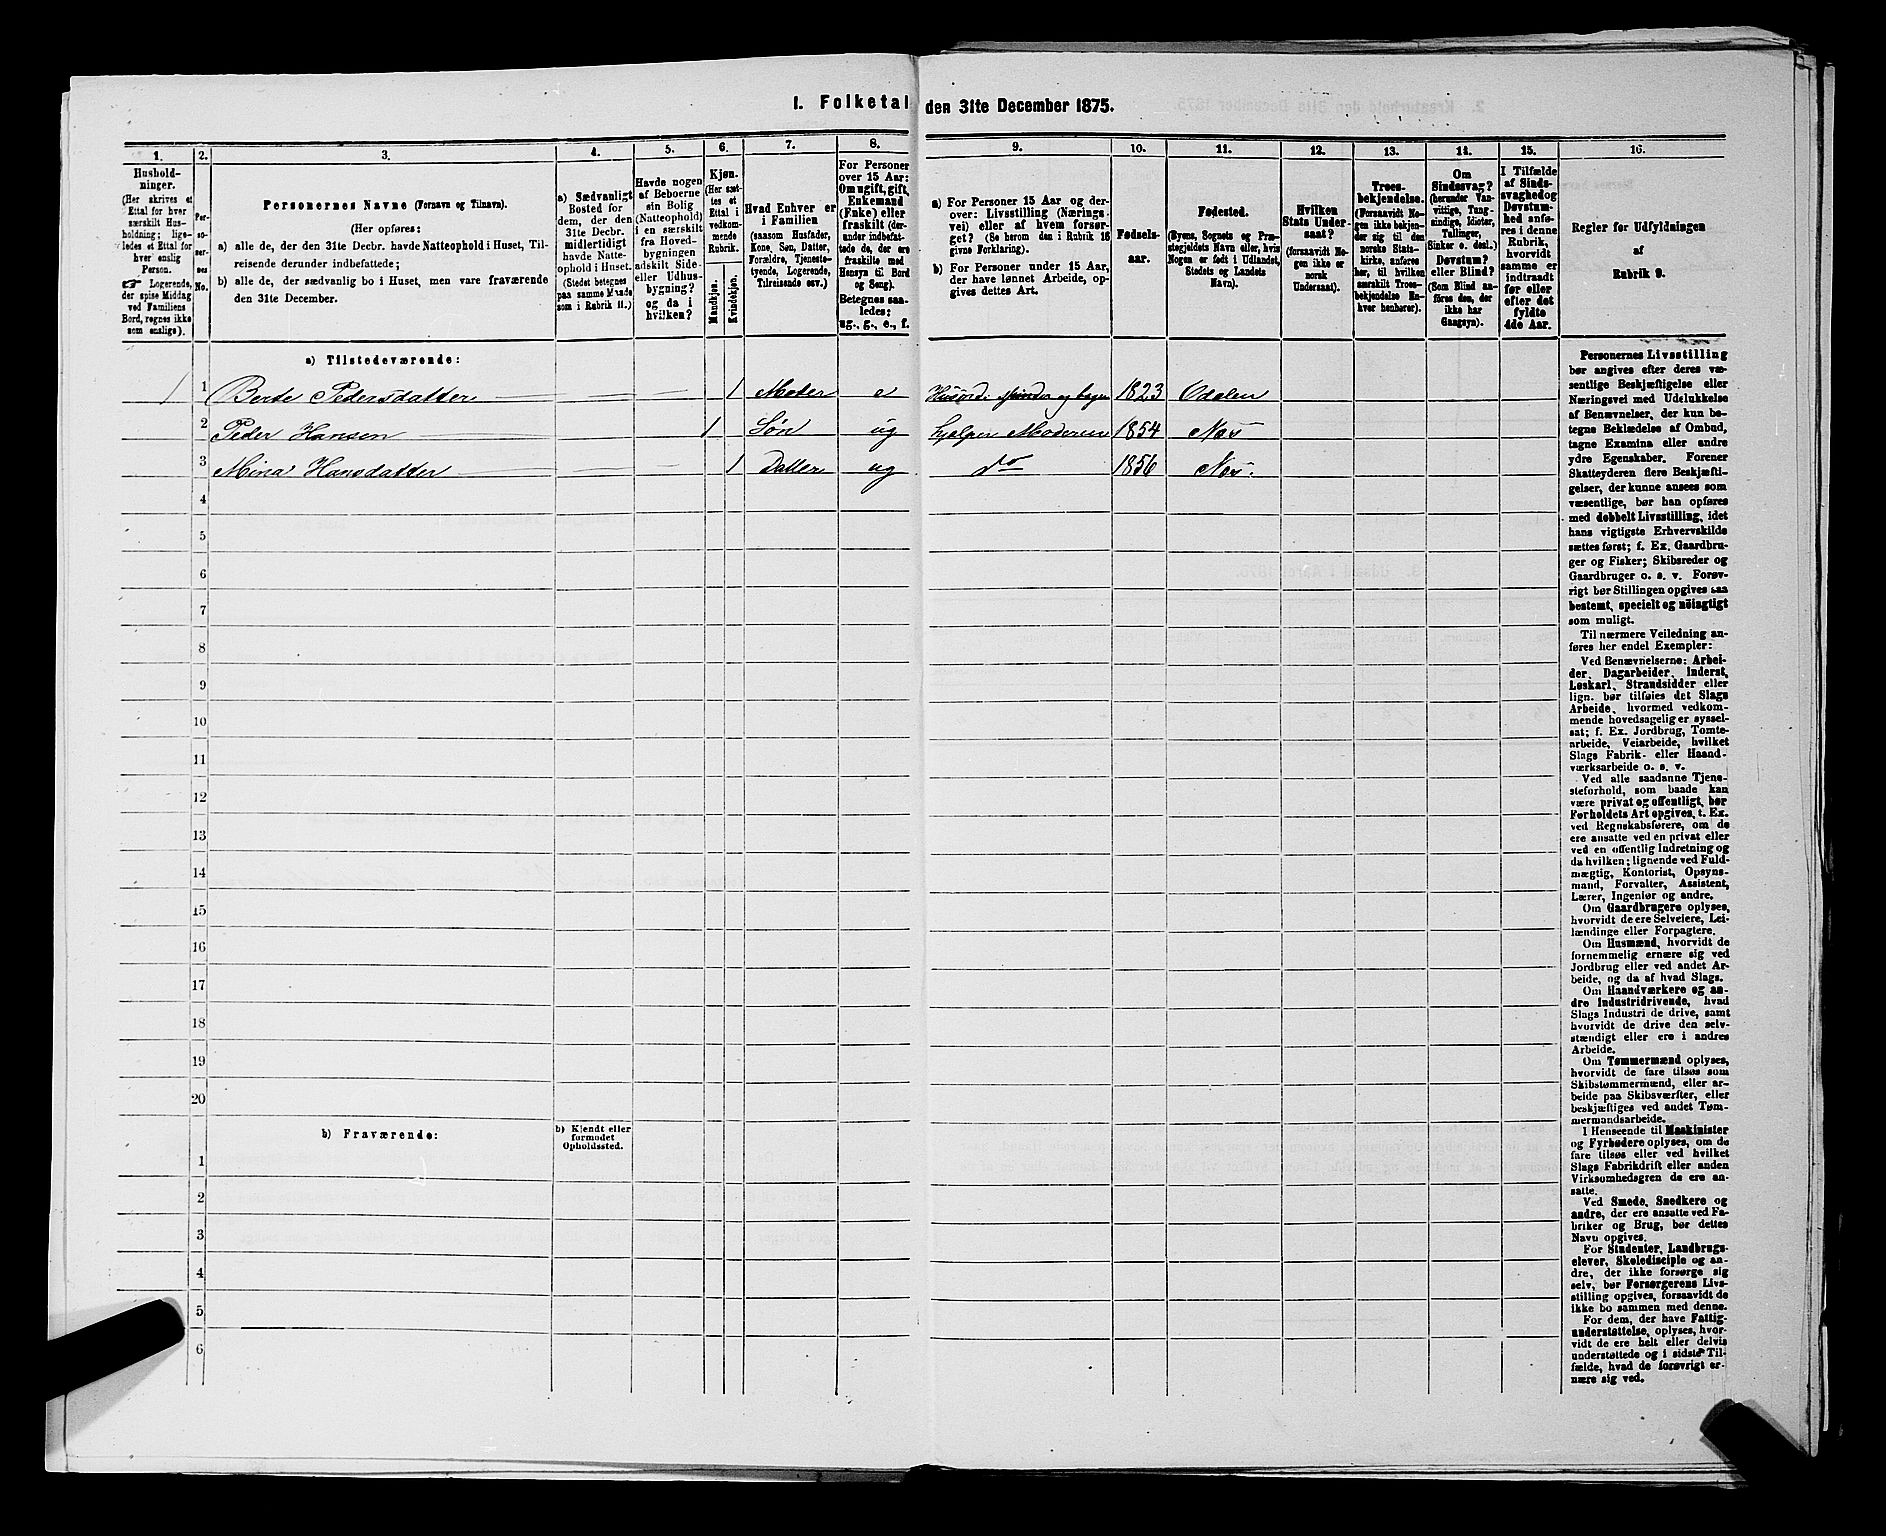 I. Folketal den 31te December 1875.
1. 2. 3. 4. 5. 6. 7. 8. 9. 10. 11. 12. 13. 14. 15. 16.
Husholdninger.
(Her skrives et
Ettal for hver
særskilt Husholdning; ligeledes
et Ettal for
hver enslig
Person.
☞ Logerende,
der spise Middag
ved Familiens
Bord, regnes ikke
som enslige).
Personernes No.
Personernes Navne (Fornavn og Tilnavn).
(Her opføres:
a) alle de, der den 31te Decbr. havde Natteophold i Huset, Tilreisende derunder indbefattede;
b) alle de, der sædvanlig bo i Huset, men vare fraværende
den 31te December.
a) Sædvanligt
Bosted for
dem, der den
31te Decbr.
midlertidigt
havde Natteophold i Huset.
(Stedet betegnes
paa samme Maade
som i Rubrik 11.)
Havde nogen
af Beboerne
sin Bolig
(Natteophold)
i en særskilt
fra Hovedbygningen
adskilt Side- eller Udhusbygning?
og da i
hvilken?
Kjøn.
(Her sættes et
Ettal i
vedkommende
Rubrik.
Mandkjøn.
Kvindekjøn.
Hvad Enhver er
i Familien
(saasom Husfader,
Kone, Søn, Datter,
Forældre, Tjenestetyende, Logerende,
Tilreisende osv.)
For Personer
over 15 Aar:
Om ugift, gift,
Enkemand
(Enke) eller
fraskilt (derunder indbefattede de, der ere
fraskilte med
Hensyn til Bord
og Seng).
Betegnes saaledes:
ug., g., e., f.
a) For Personer 15 Aar og derover: Livsstilling (Næringsvei) eller af hvem forsørget? (Se herom den i Rubrik 16
givne Forklaring).
b) For Personer under 15 Aar,
der have lønnet Arbeide, opgives dettes Art.
Fødselsaar.
Fødested.
(Byens, Sognets og Præstegjeldets Navn eller, hvis
Nogen er født i Udlandet,
Stedets og Landets
Navn).
Hvilken
Stats Undersaat?
(forsaavidt Nogen ikke er
norsk
Undersaat).
Troesbekjendelse.
(Forsaavidt Nogen ikke bekjender sig til den
norske Statskirke, anføres
her, til hvilken
særskilt Troesbekjendelse Enhver henhører).
Om
Sindssvag?
(herunder Vanvittige, Tungsindige, Idioter,
Tullinger,
Sinker o. desl.)
Døvstum?
eller Blind?
(Som Blind anføres den, der
ikke har
Gangsyn).
I Tilfælde
af Sindssvaghed og
Døvstumhed anføres i denne
Rubrik,
hvorvidt
samme er
indtraadt
før eller
efter det
fyldte
4de Aar.
Regler for Udfyldningen
af
Rubrik 9.
a) Tilstedeværende:
1 1 Berte Pedersdatter 1 Moder e 1823 Odalen
2 Peder Hansen 1 Søn ug hjelper Moderen 1854 Næs
3 Mina Hansdatter 1 Datter ug do 1856 Næs.
4
5
6
7
8
9
10
11
12
13
14
15
16
17
18
19
20
b) Fraværende:
b) Kjendt eller
formodet
Opholdssted.
1
2
3
4
5
6
Personernes Livsstilling
bør angives efter deres væsentlige Beskjæftigelse eller
Næringsvei med Udelukkelse
af Benævnelser, der kun betegne Beklædelse af Ombud,
tagne Examina eller andre
ydre Egenskaber. Forener
Skatteyderen flere Beskjæftigelser, der kunne ansees som
væsentlige, bør han opføres
med dobbelt Livsstilling, idet
hans vigtigste Erhvervskilde
sættes først; f. Ex. Gaardbruger og Fisker; Skibsreder og
Gaardbruger o. s. v. Forøvrigt bør Stillingen opgives saa
bestemt, specielt og nöiagtigt
som muligt.
Til nærmere Veiledning anføres her endel Exempler:
Ved Benævnelserne: Arbeider, Dagarbeider, Inderst,
Løskarl, Strandsidder eller
lign. bør tilføies det Slags
Arbeide, hvormed vedkommende hovedsagelig er sysselsat; f. Ex. Jordbrug, Tomtearbeide, Veiarbeide, hvilket
Slags Fabrik- eller Haandværksarbeide o. s. v.
Ved alle saadanne Tjenesteforhold, som baade kan
være privat og offentligt, bør
Forholdets Art opgives, t. Ex.
ved Regnskabsførere, om de
ere ansatte ved en privat eller
ved en offentlig Indretning og
da hvilken; lignende ved Fuldmægtig, Kontorist, Opsynsmand, Forvalter, Assistent,
Lærer, Ingeniør og andre.
Om Gaardbrugere oplyses,
hvorvidt de ere Selveiere, Leilændinge eller Forpagtere.
Om Husmænd, hvorvidt de
fornemmelig ernære sig ved
Jordbrug eller ved andet Arbeide, og da af hvad Slags.
Om Haandværkere og andre Industridrivende, hvad
Slags Industri de drive, samt
hvorvidt de drive den selvstændigt eller ere i andres
Arbeide.
Om Tømmermænd oplyses,
hvorvidt de fare tilsøs som
Skibstømmermænd, eller arbeide paa Skibsværfter, eller
beskjæftiges ved andet Tømmermandsarbeide.
I Henseende til Maskinister
og Fyrbødere oplyses, om de
fare tilsøs eller ved hvilket
Slags Fabrikdrift eller anden
Virksomhedsgren de ere ansatte.
Ved Smede, Snedkere og
andre, der ere ansatte ved Fabriker og Brug, bør dettes
Navn opgives.
For Studenter, Landbrugselever, Skoledisciple og andre, der ikke forsørge sig
selv, bør Forsørgerens Livsstilling opgives, forsaavidt de
ikke bo sammen med denne.
For dem, der have Fattigunderstøttelse, oplyses, hvorvidt de ere helt eller delvis
understøttede og i sidste Tilfælde, hvad de forøvrigt ernære sig ved.